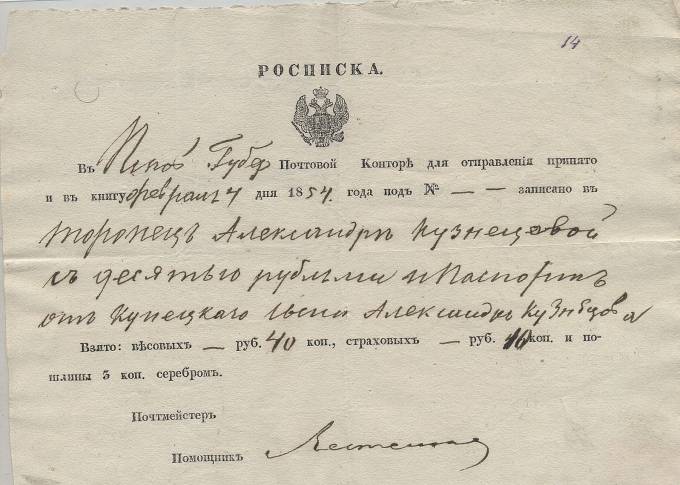 14
РОСПИСКА.
Въ Псков Губер Почтовой Конторѣ для отправленія принято
и въ книгу февраля 4 дня 1854 года подъ № — — записано въ
Торопецъ Александрѣ Кузнецовой
съ десятью рублями и Паспортъ
отъ Купецкаго Александра Кузнѣцова
Взято: вѣсовыхъ — руб. 40 коп., страховыхъ — руб. 10 коп. и по-
шлины 3 коп. серебромъ.
Почтмейстеръ
Помощникъ